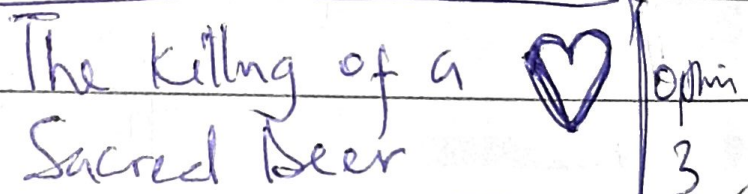 The Killing of a
Sacred Deer
3